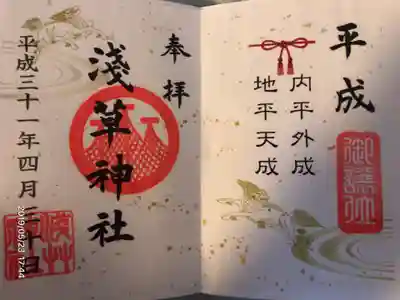 平成
内平外成
地平天成
奉拝
淺草神社
平成三十一年四月三十日
2019/05/23 17:44